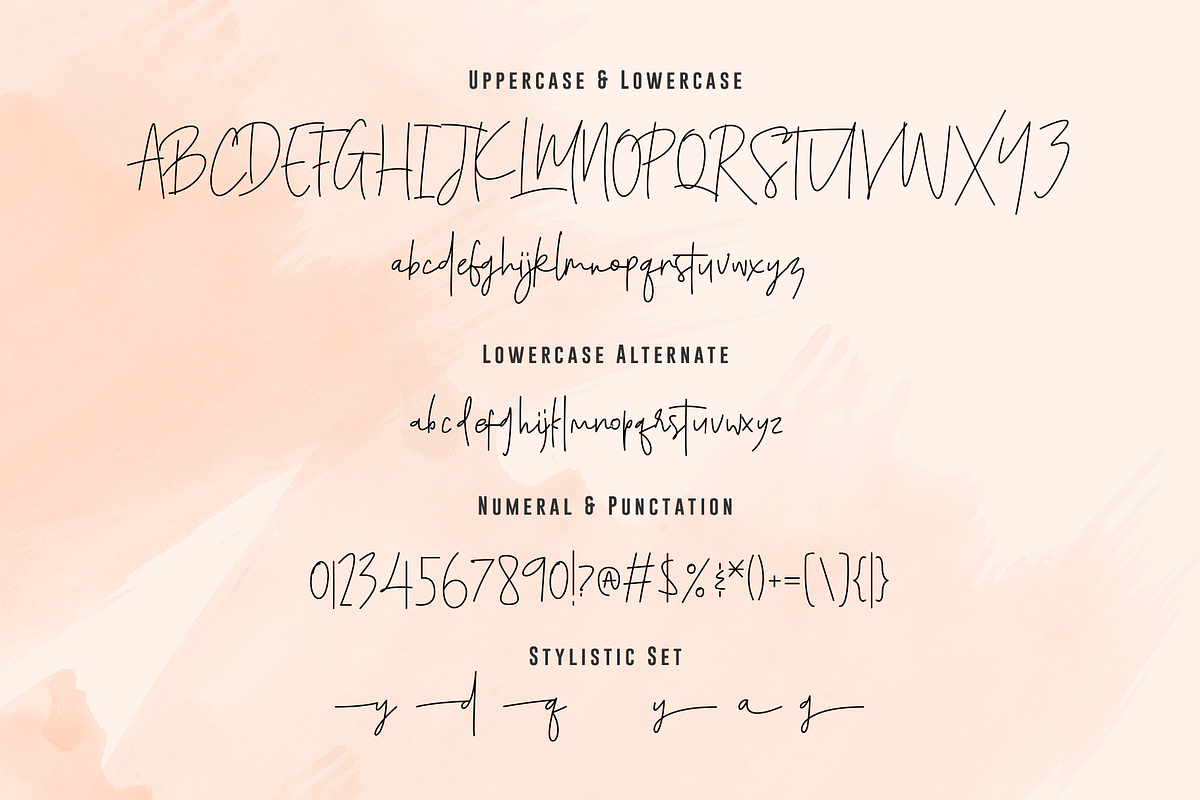 Uppercase & Lowercase
ABCDEFGHIJKLMNOPQRSTUVWXYZ
abcdefghijklmnopqrstuvwxyz
Lowercase Alternate
abcdefghijklmnopqrstuvwxyz
Numeral & Punctation
01234567890!?@#$%&*()+=[\]{|}
Stylistic Set
y d q y a g